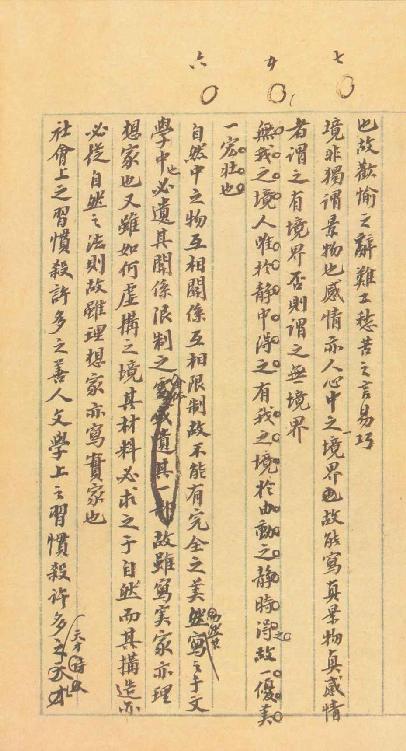 七
五
六
也故歡愉之辭難工愁苦之言易巧
境非獨謂景物也感情亦人心中之一境界故能寫真景物真感情
者謂之有境界否則謂之無境界
無我之境人唯於靜中得之有我之境於由動之靜時得之故一優美
一宏壯也
自然中之物互相關係互相限制故不能有完全之美然寫之于文
學中也必遺其關係限制之處故雖寫實家亦理
想家也又雖如何虛構之境其材料必求之于自然而其構造亦
必從自然之法則故雖理想家亦寫實家也
社會上之習慣殺許多之善人文學上之習慣殺許多之天才